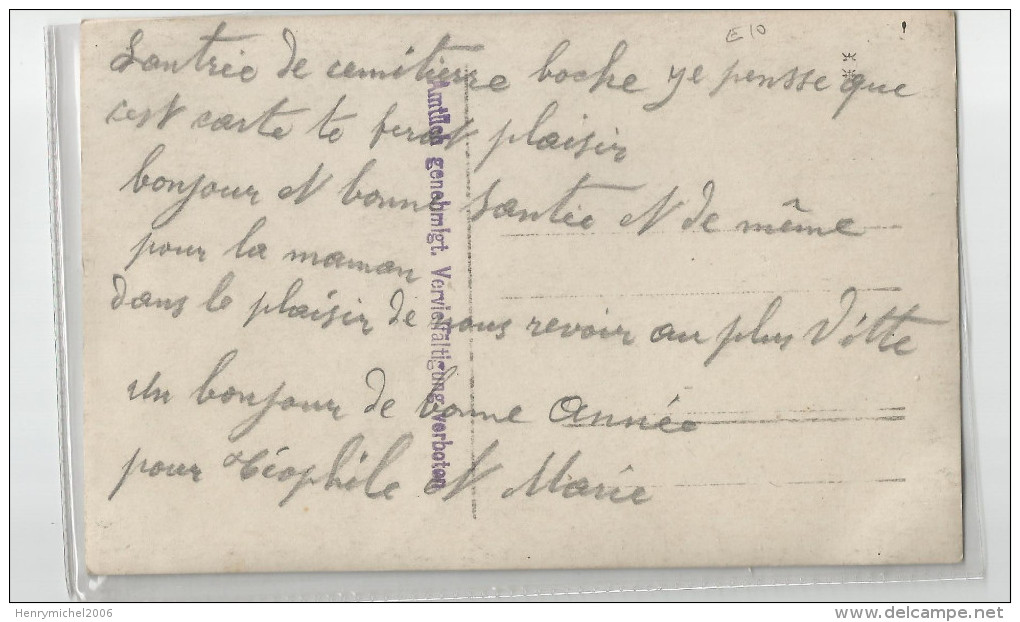 E10
Lantrée de cemitierre boche ye pensse que
cest carte te ferat plaisir
bonjour et bonne santée et de même
pour la maman
dans le plaisir de vous revoir au plus vitte
un bonjour de bonne Année
pour téophile et Marie
Amtlich genehmigt. Vervielfältigung verboten
Henrymichel2006
www.delcampe.net